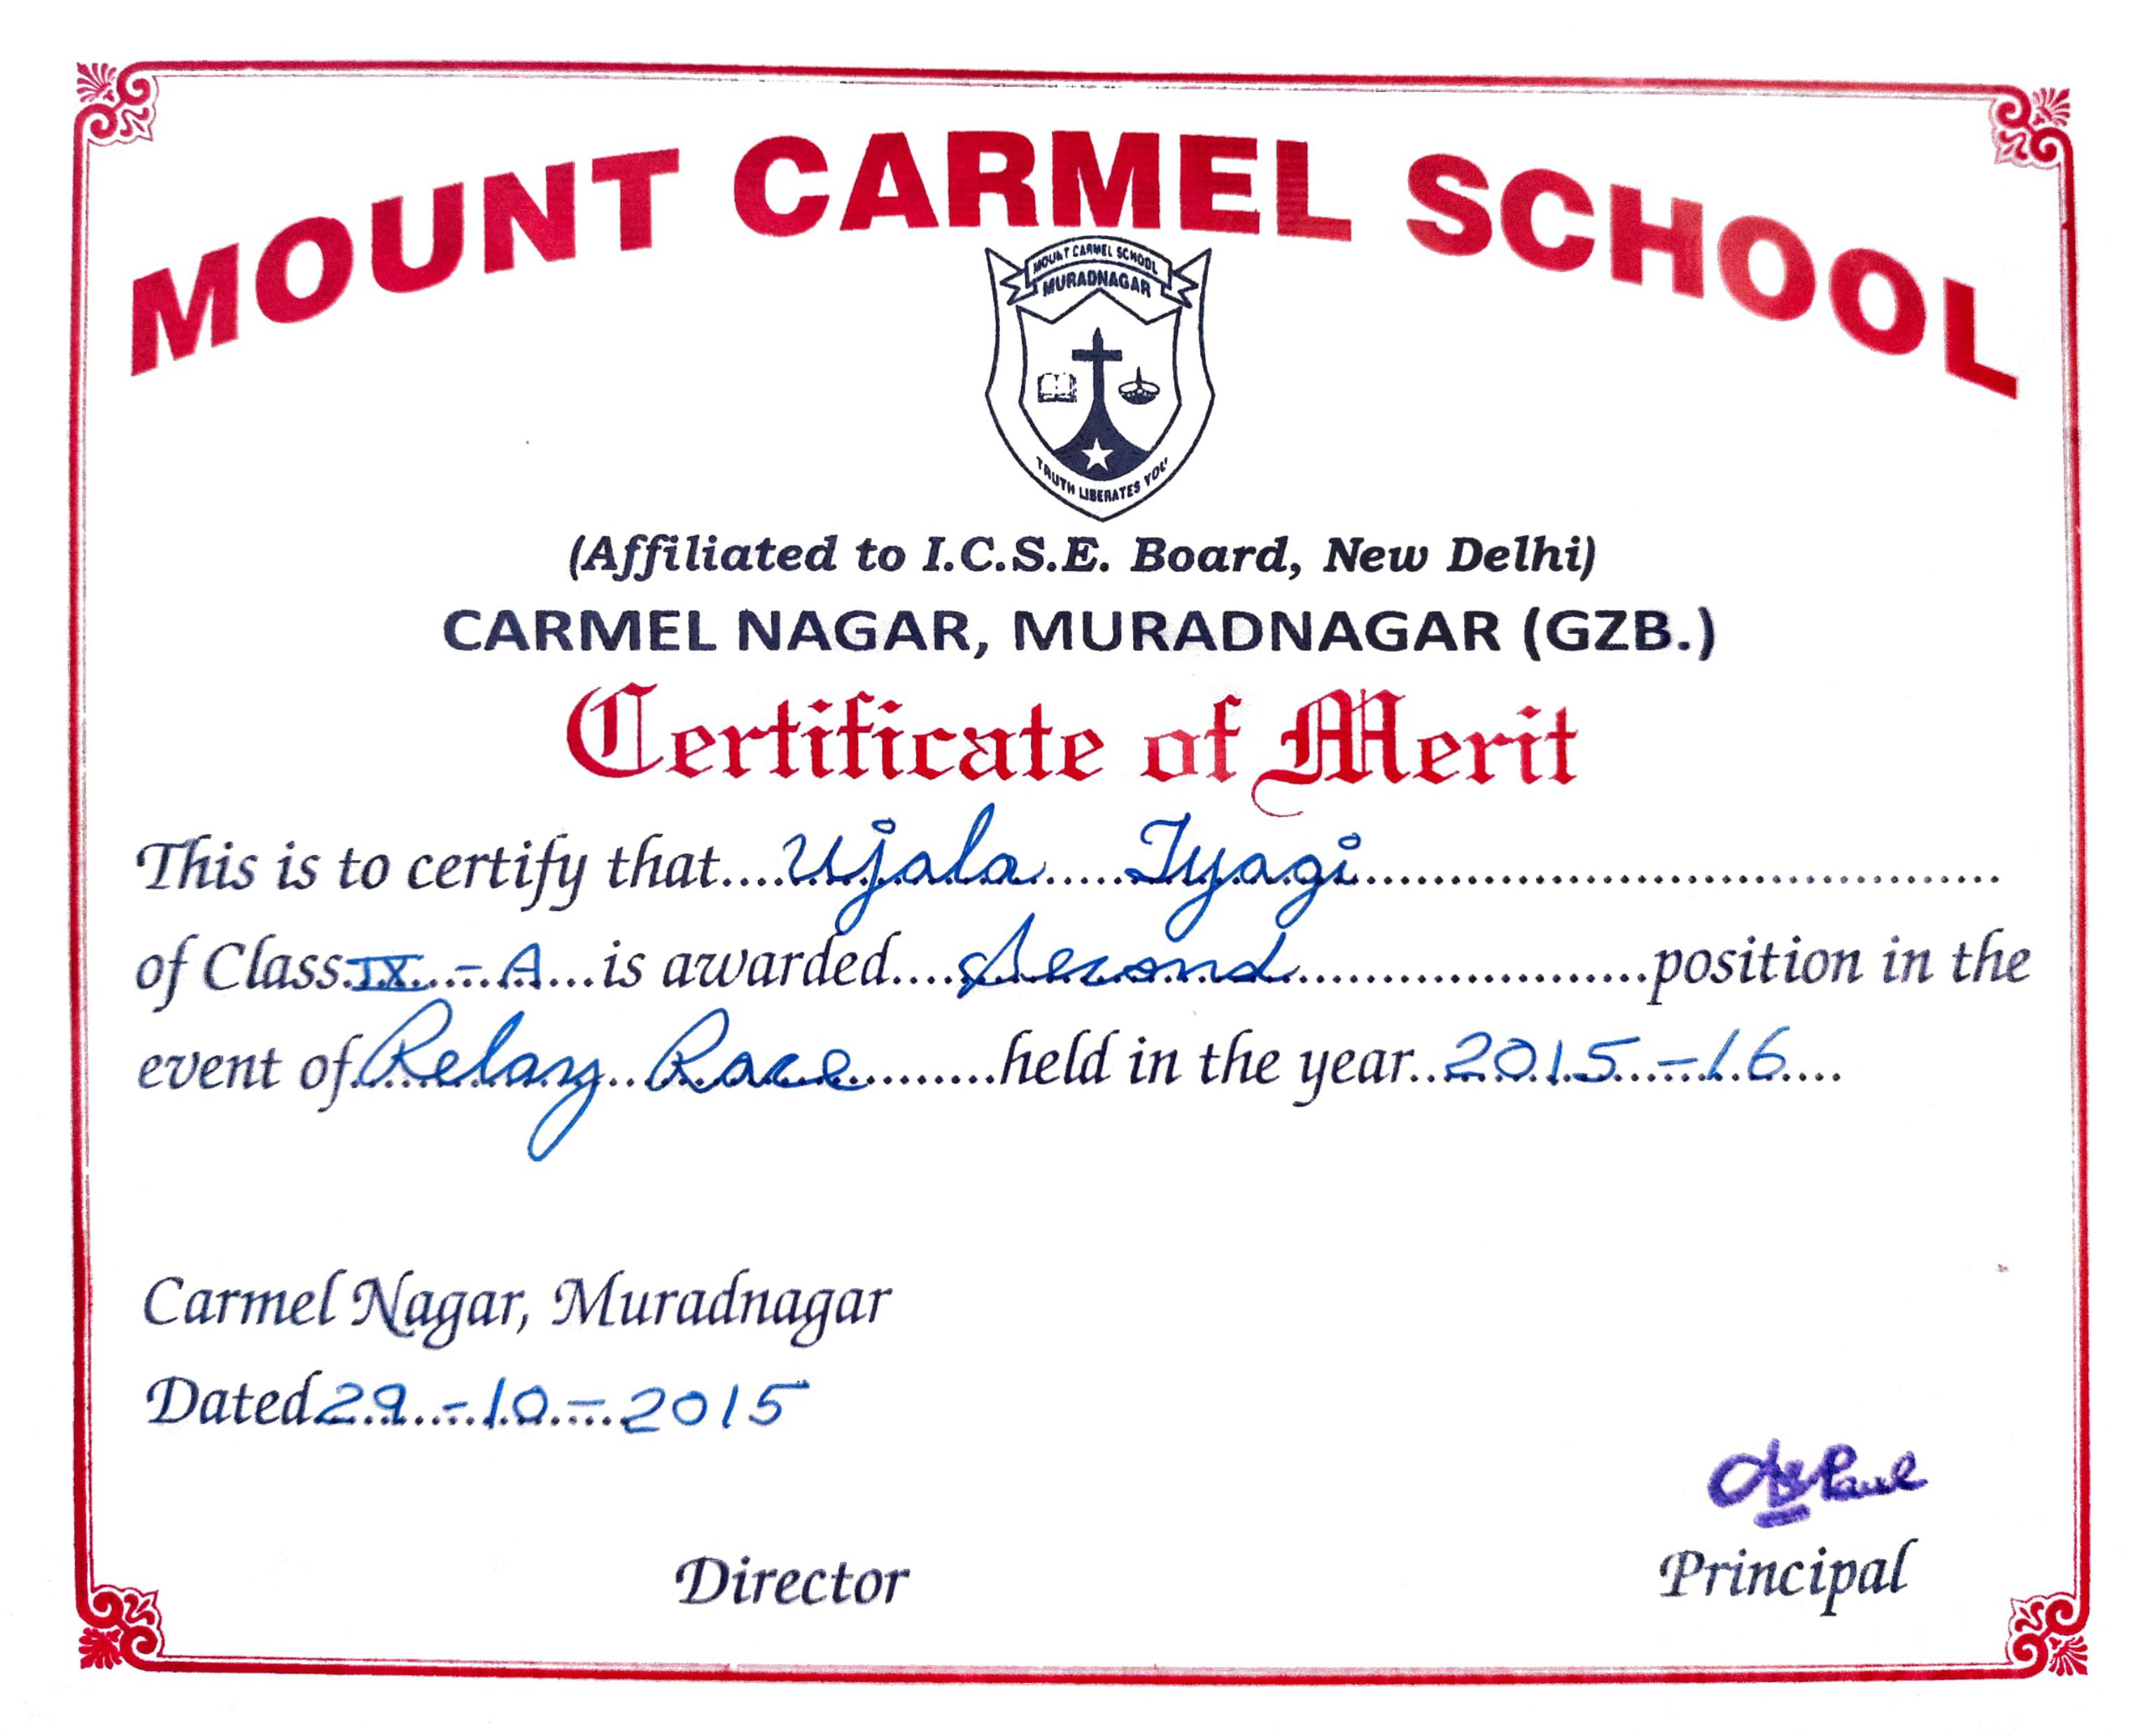 MOUNT CARMEL SCHOOL
MOUNT CARMEL SCHOOL
MURADNAGAR
TRUTH LIBERATES YOU
(Affiliated to I.C.S.E. Board, New Delhi)
CARMEL NAGAR, MURADNAGAR (GZB.)
Certificate of Merit
This is to certify that....Ujala.....Tyagi..........................................
of Class.IX..-..A...is awarded....Second.......................position in the
event of.Relay..Race.........held in the year..2015..-16....
Carmel Nagar, Muradnagar
Dated.29..-10-...2015
Director
Principal